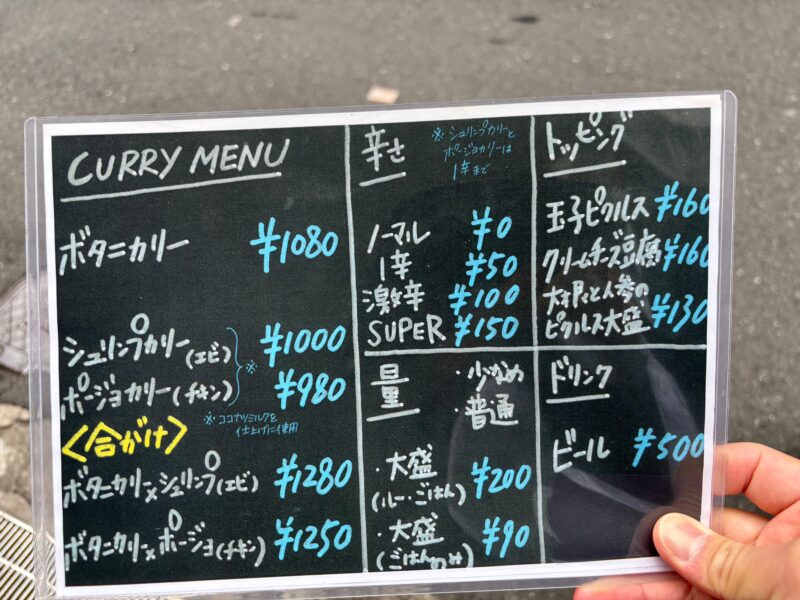 CURRY MENU
ボタニカリー ¥1080
シュリンプカリー(エビ) ※ ¥1000
ポージョカリー(チキン) ¥980
※ココナツミルクを
仕上げに使用
<合がけ>
ボタニカリー×シュリンプ(エビ) ¥1280
ボタニカリー×ポージョ(チキン) ¥1250
辛さ
※シュリンプカリーと
ポージョカリーは
1辛まで
ノーマル ¥0
1辛 ¥50
激辛 ¥100
SUPER ¥150
量 ・少なめ
・普通
・大盛
(ルー・ごはん) ¥200
・大盛
(ごはんのみ) ¥90
トッピング
玉子ピクルス ¥160
クリームチーズ豆腐 ¥160
大根と人参の
ピクルス大盛 ¥130
ドリンク
ビール ¥500